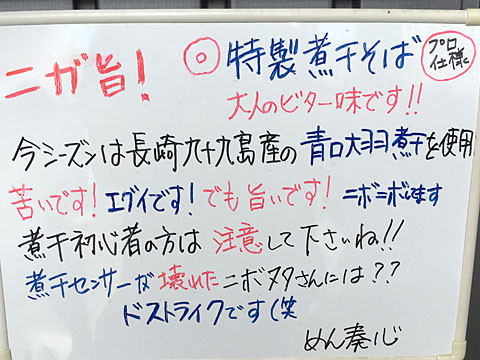 ニガ旨！ ◎特製煮干そば プロ仕様
大人のビター味です！！
今シーズンは長崎九十九島産の青口大羽煮干を使用
苦いです！エグイです！でも旨いです！ニボニボします
煮干初心者の方は注意して下さいね！！
煮干センサーが壊れたニボヲタさんには？？
ドストライクです（笑
めん奏心